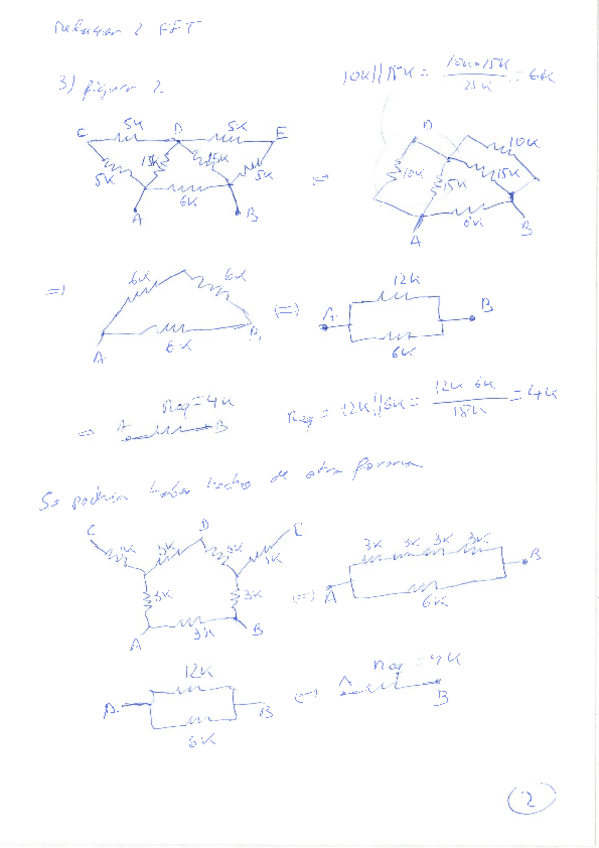 Relacion 2 FFT
3) figura 2.
10K||15K = 10K·15K / 25K = 6K
C 5K D 5K E
5K 15K 15K 5K
6K
A B
=>
D 10K
10K 15K 15K
6K
A B
=> 6K 6K
6K
A B
(=) 12K
A B
6K
=> A Req = 4K B
Req = 12K||6K = 12K·6K / 18K = 4K
Se podría haber hecho de otra forma
C D E
3K
3K 3K
A B
(=) 3K 3K 3K 3K
A B
6K
12K
A B
6K
(=) A Req = 4K B
2